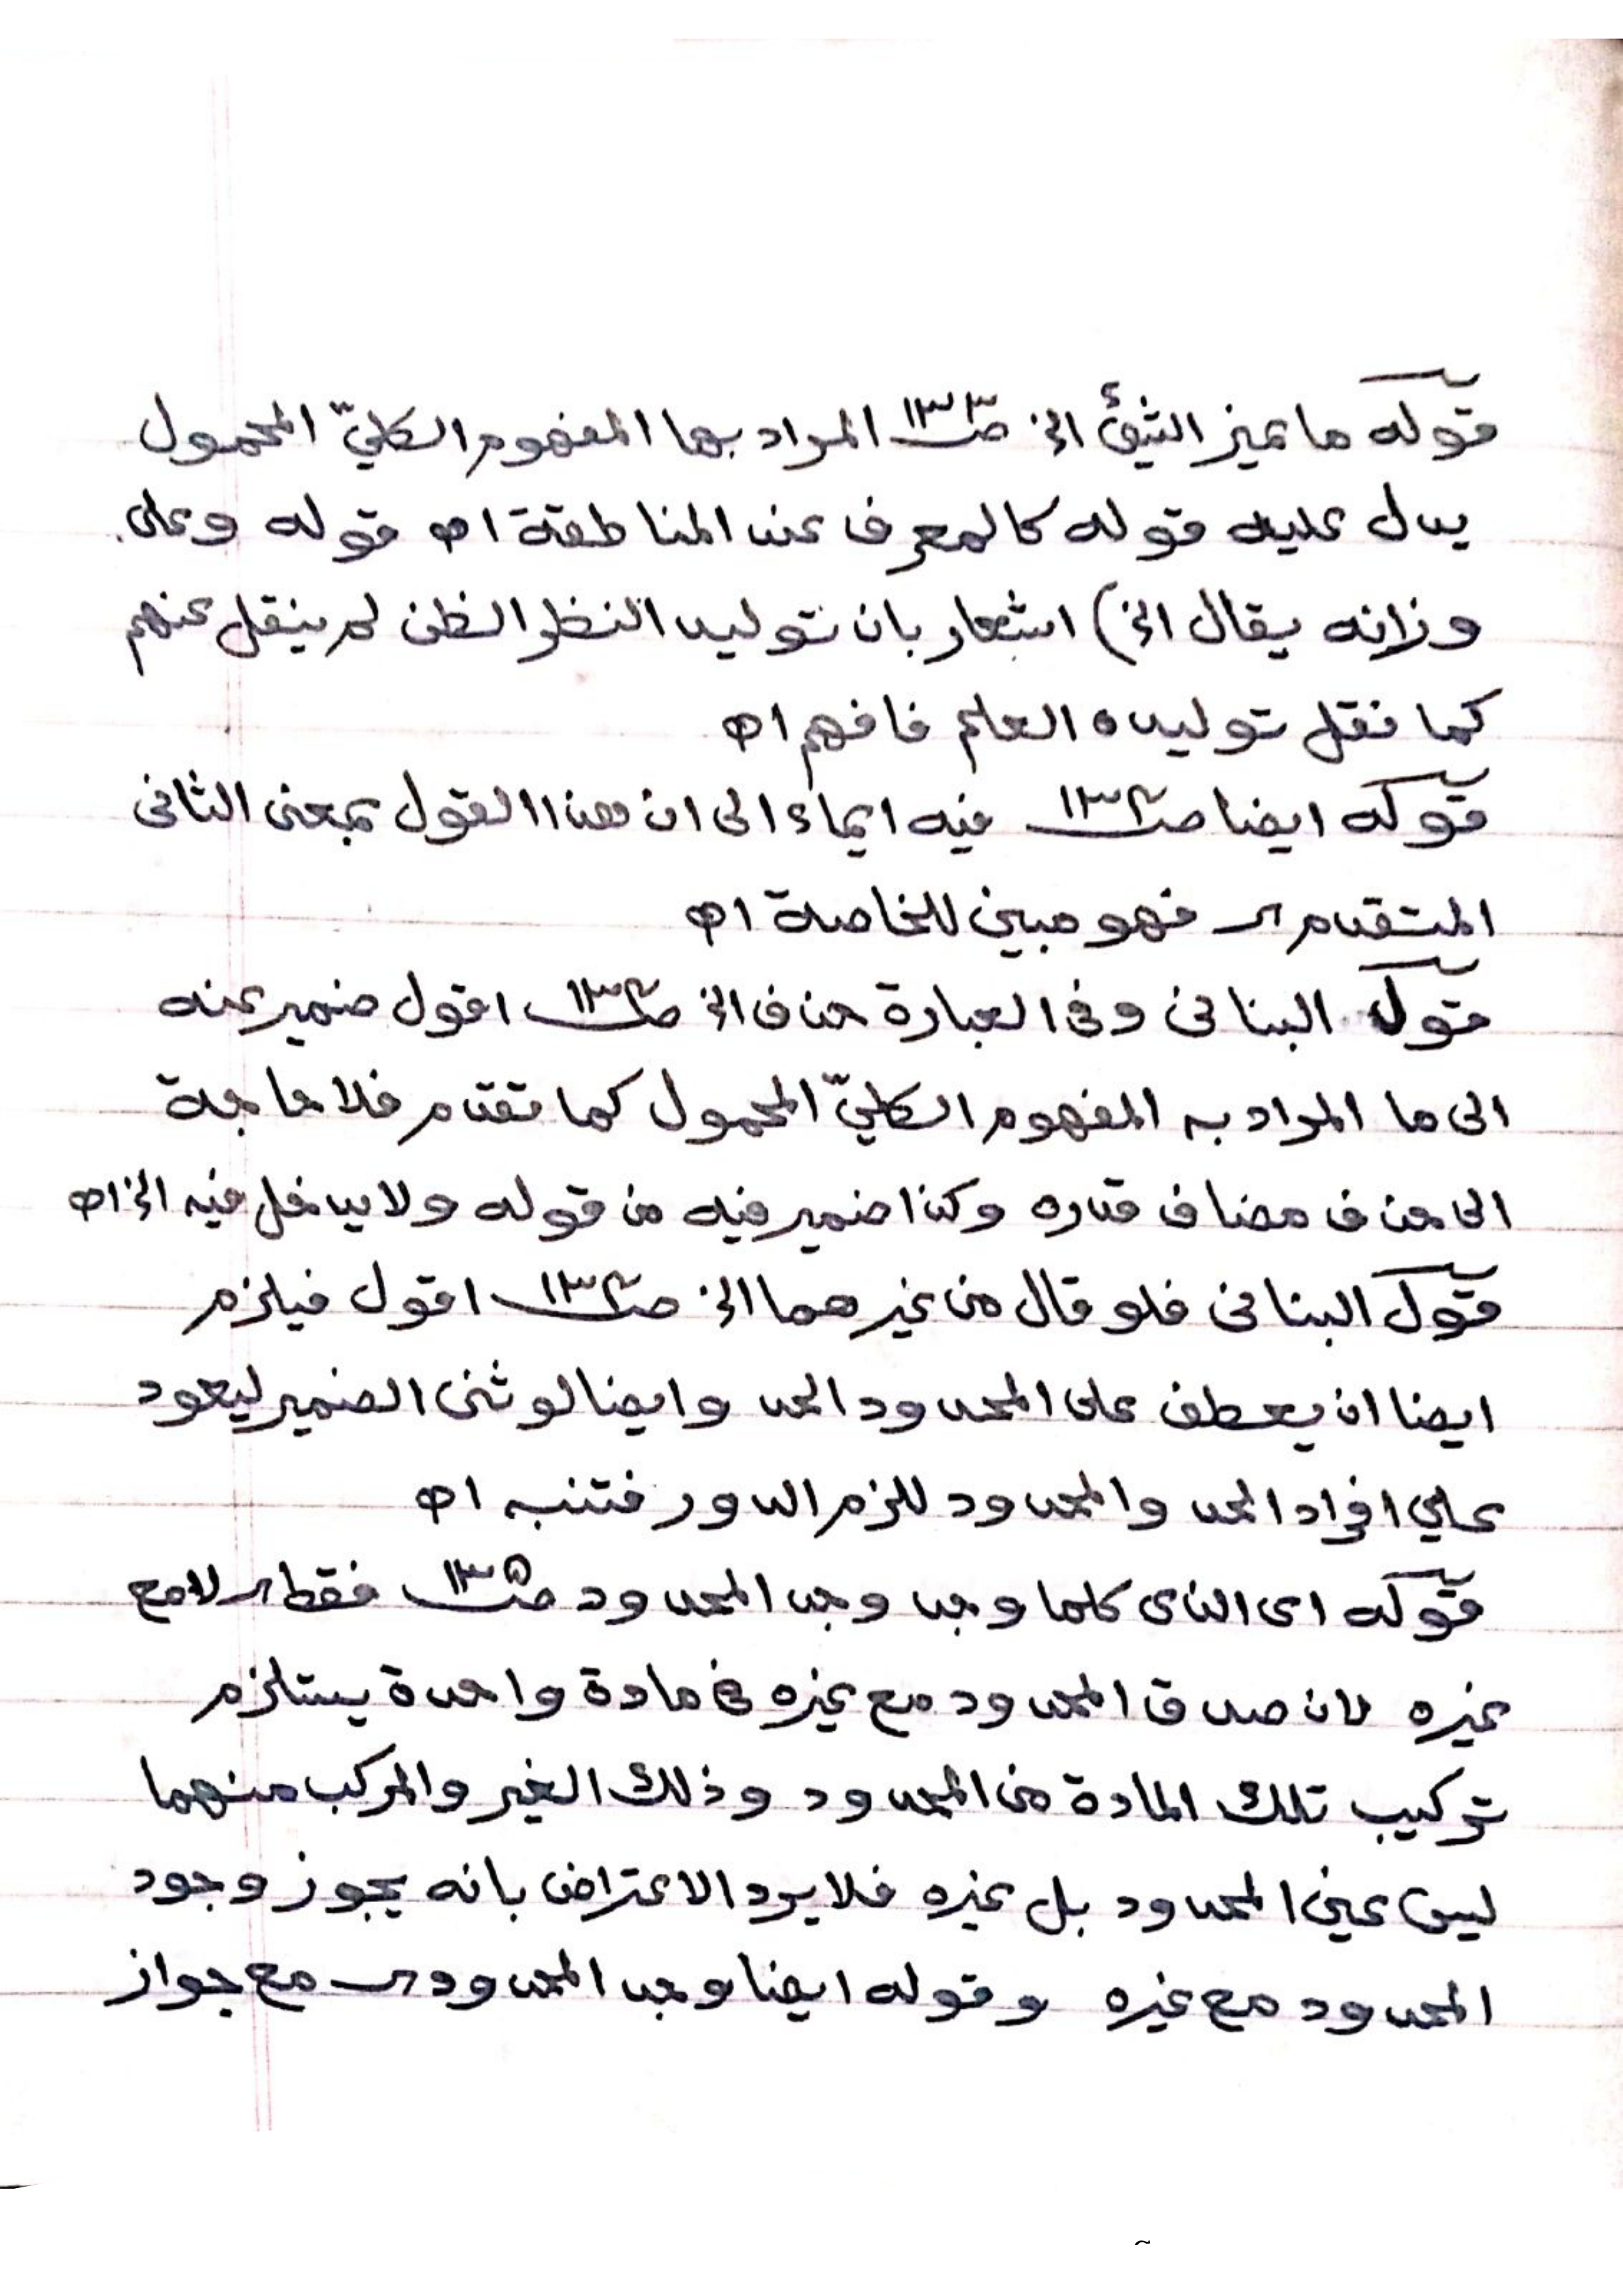 قوله ما يميز الشئ الخ صـ١٣٣ المراد بها المفهوم الكليّ المحمول
يدل عليه قوله كالمعرف عند المناطقة اه قوله وعلى
وزانه يقال الخ) اشعار بان توليد النظر الظن لم ينقل عنهم
كما نقل توليده العلم فافهم اه
قوله ايضا صـ١٣٤ فيه ايماء الى ان هذا القول بمعنى الثانى
المتقدم فهو مبين للخاصة اه
قول البنانى وفى العبارة حذف الخ صـ١٣٤ اقول ضمير عنه
الى ما المراد به المفهوم الكليّ المحمول كما تقدم فلا حاجة
الى حذف مضاف قدره وكذا ضمير فيه من قوله ولا يدخل فيه الخ اه
قول البنانى فلو قال من غيرهما الخ صـ١٣٤ اقول فيلزم
ايضا ان يعطف على المحدود الحد وايضا لو ثنى الضمير ليعود
على افراد الحد والمحدود للزم الدور فتنبه اه
قوله اى الذى كلما وجد وجد المحدود صـ١٣٥ فقط لا مع
غيره لان صدق المحدود مع غيره فى مادة واحدة يستلزم
تركيب تلك المادة من المحدود وذلك الغير والمركب منهما
ليس عين المحدود بل غيره فلا يرد الاعتراض بانه يجوز وجود
المحدود مع غيره وقوله ايضا وجد المحدود مع جواز